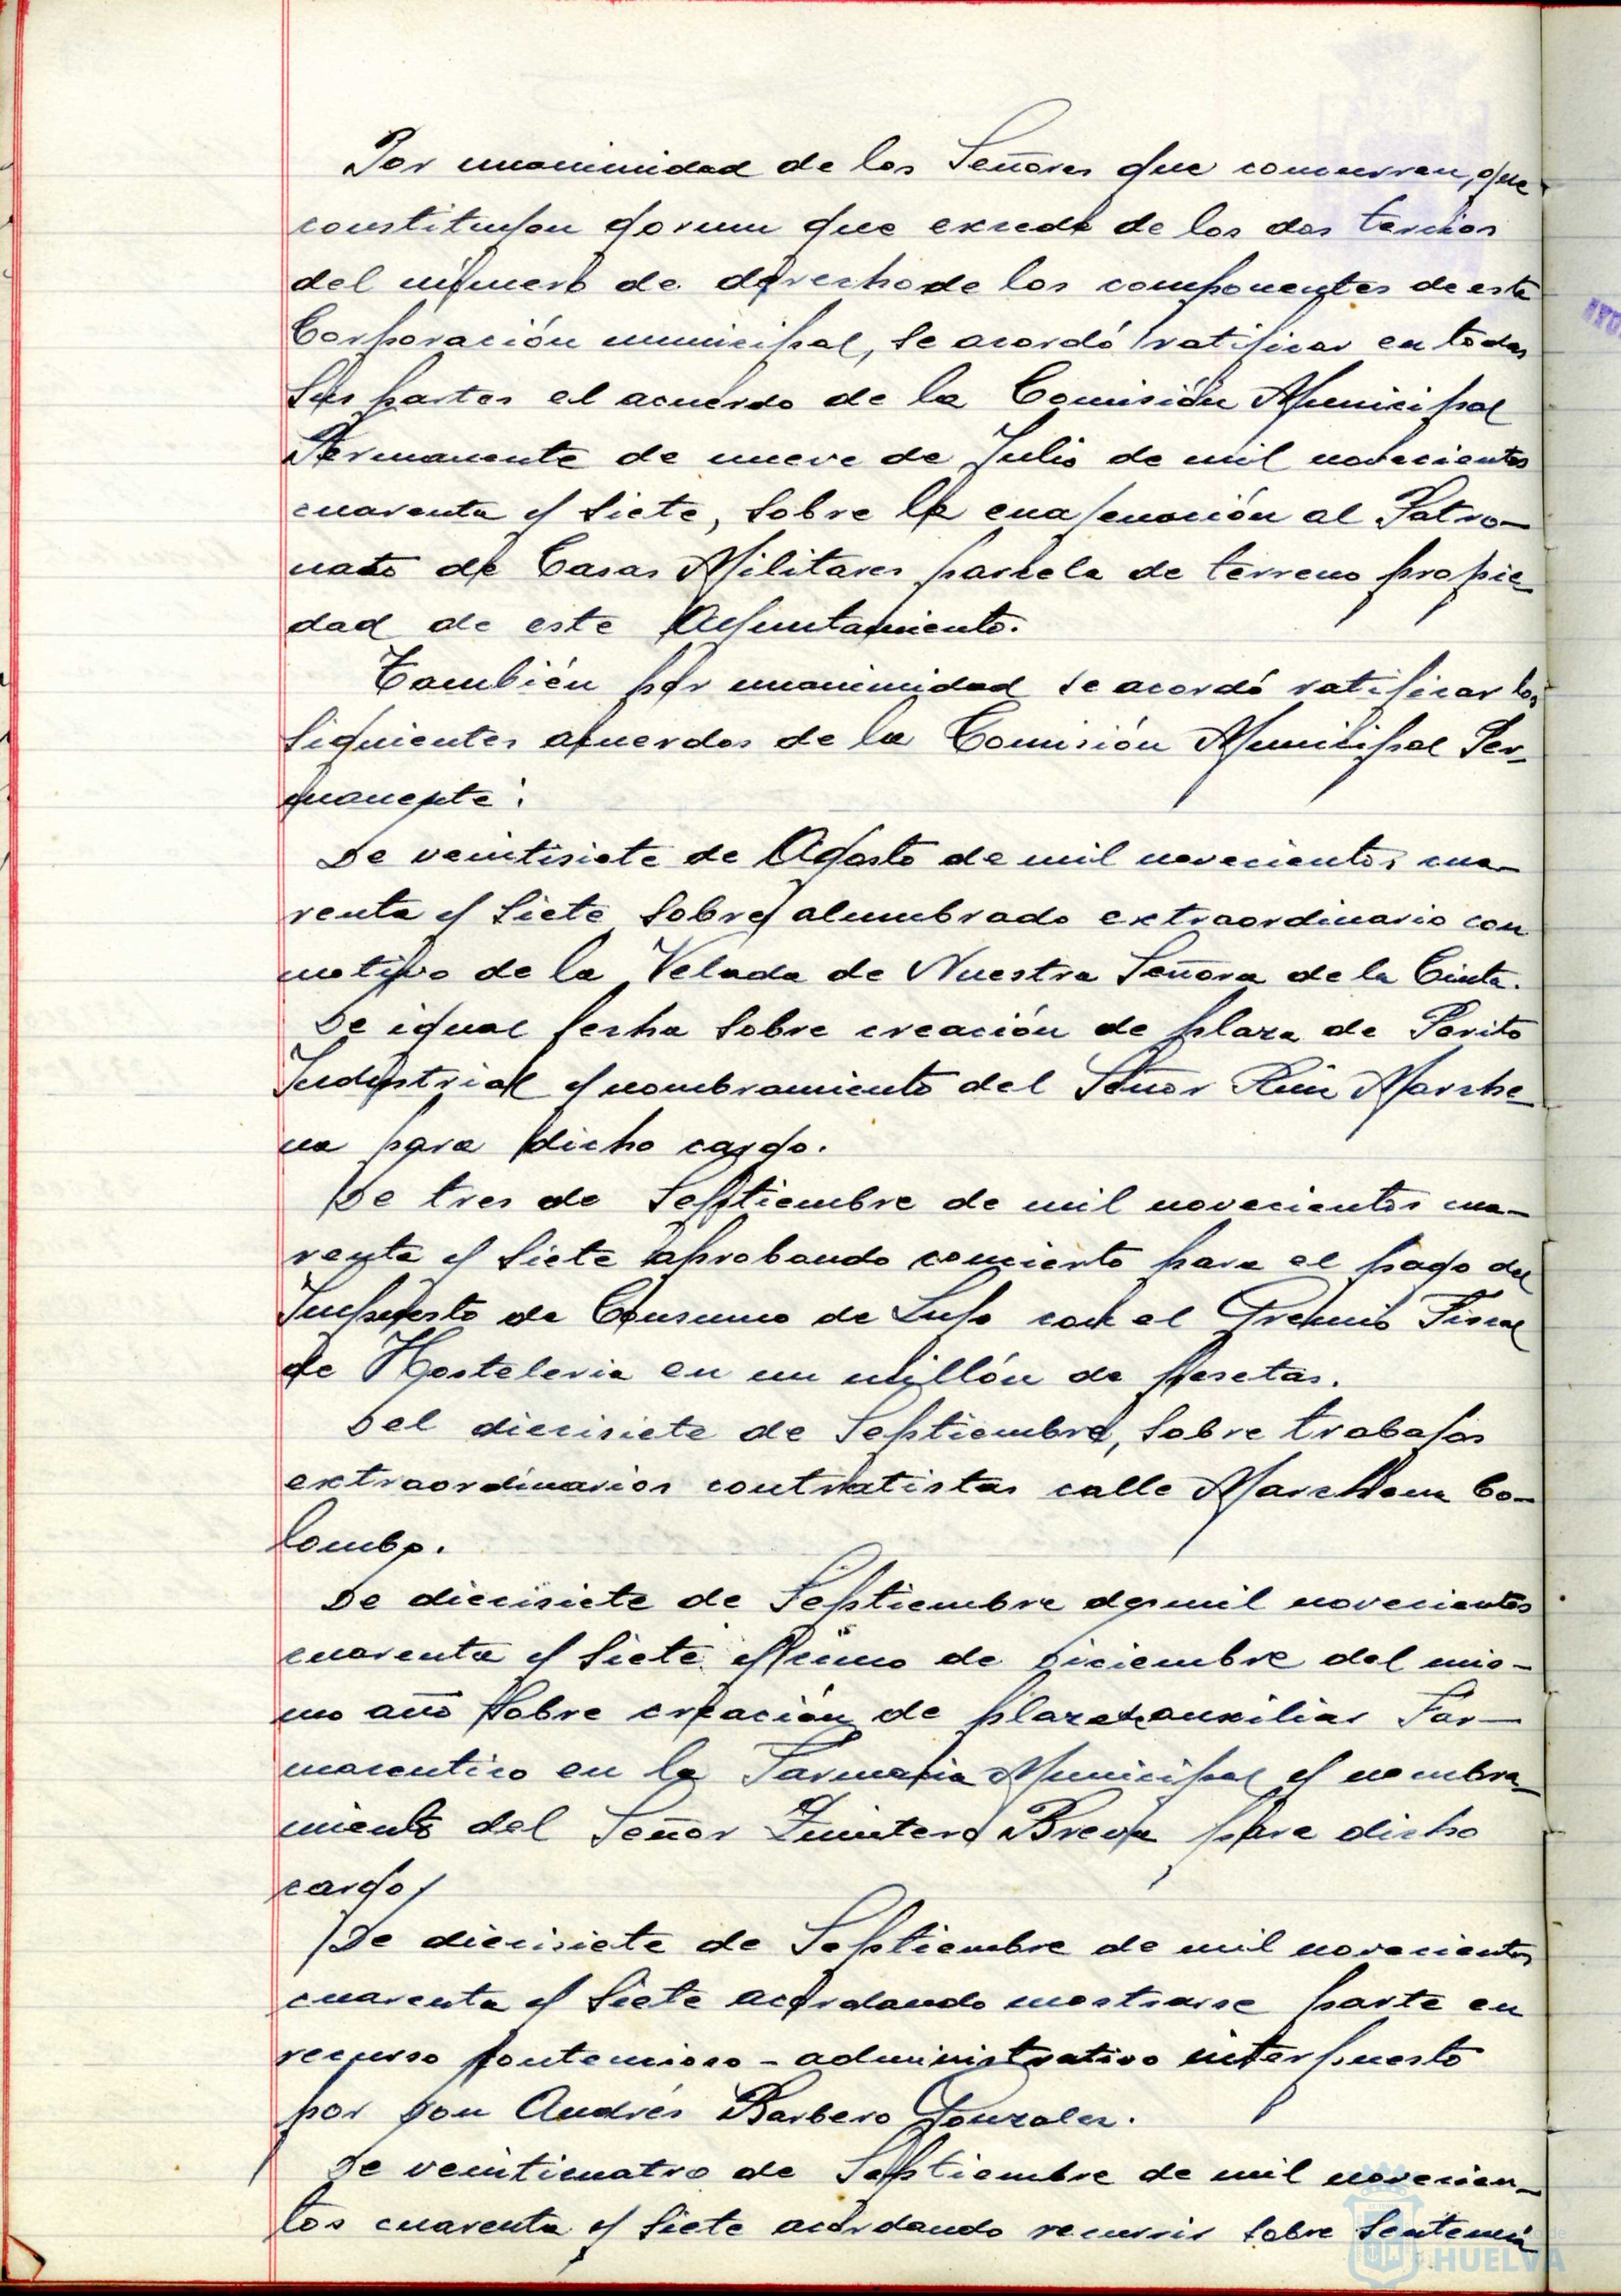 Por unanimidad de los Señores que concurren, que
constituyen qorum que excede de los dos tercios
del número de derecho de los componentes de esta
Corporación municipal, se acordó ratificar en todas
sus partes el acuerdo de la Comisión Municipal
Permanente de nueve de Julio de mil novecientos
cuarenta y siete, sobre la enajenación al Patro-
nato de Casas Militares parcela de terreno propie-
dad de este Ayuntamiento.
También por unanimidad se acordó ratificar los
siguientes acuerdos de la Comisión Municipal Per-
manente:
De veintisiete de Agosto de mil novecientos cua-
renta y siete sobre alumbrado extraordinario con
motivo de la Velada de Nuestra Señora de la Cinta.
De igual fecha sobre creación de plaza de Perito
Industrial y nombramiento del Señor Ruiz Marche-
na para dicho cargo.
De tres de Septiembre de mil novecientos cua-
renta y siete aprobando concierto para el pago del
Impuesto de Consumo de Lujo con el Gremio Fiscal
de Hosteleria en un millón de pesetas.
Del diecisiete de Septiembre, sobre trabajos
extraordinarios contratistas calle Marchena Co-
lombo.
De diecisiete de Septiembre de mil novecientos
cuarenta y siete y de Diciembre del mis-
mo año sobre creación de plaza de auxiliar Far-
maceutico en la Farmacia Municipal y nombra-
miento del Señor Quintero Breva para dicho
cargo
De diecisiete de Septiembre de mil novecientos
cuarenta y siete acordando mostrarse parte en
recurso contencioso-administrativo interpuesto
por Don Andrés Barbero Gonzalez.
De veinticuatro de Septiembre de mil novecien-
tos cuarenta y siete acordando recurrir sobre sentencia
HUELVA